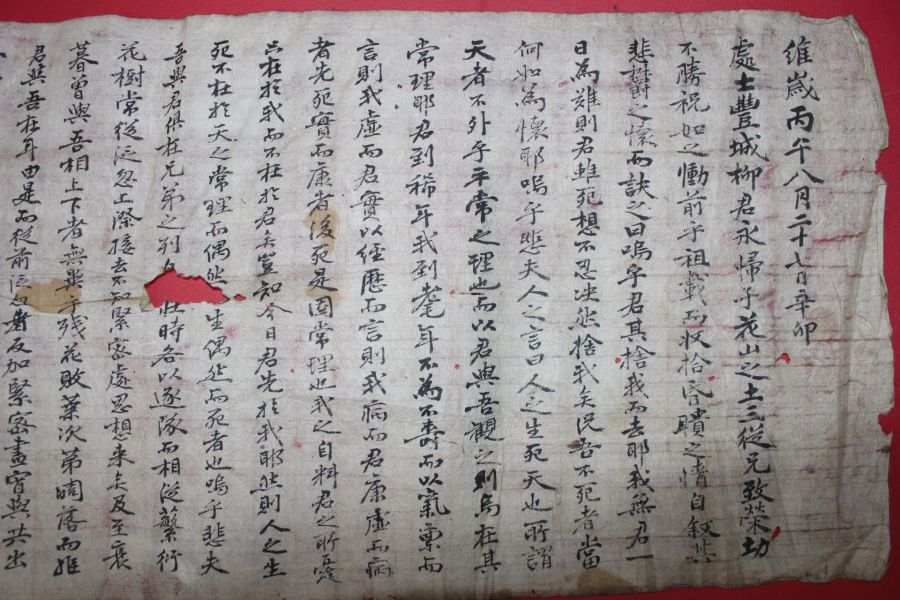 維歲丙午八月二十七日辛卯
處士豐城柳君永歸于花山之土三從兄致榮切
不勝祝如之慟前乎祖載而收拾昏聵之情自叙其
悲鬱之懷而訣之曰嗚乎君其捨我而去耶我無君一
日為難則君雖死想不忍泱然捨我矣況吾不死者當
何如為懷耶嗚乎悲夫人之言曰人之生死天也所謂
天者不外乎平常之理也而以君與吾觀之則烏在其
常理耶君到稀年我到耄年不為不壽而以氣稟而
言則我虛而君實以經歷而言則我病而君康虛而病
者先死實而康者後死是固常理也我之自料君之所憂
亦在於我而不在於君矣豈知今日君先於我耶然則人之生
死不在於天之常理而偶然生偶然而死者也嗚乎悲夫
吾與君俱在兄弟之列 壯時各以逐隊而相從蘩衍
花樹常從泛忽上際接去不知緊密處思想來矣及至衰
暮曾與吾相上下者無與乎殘花敗葉次第凋落而維
君與吾在耳由是而從前泛忽者反加緊密晝宵與共出